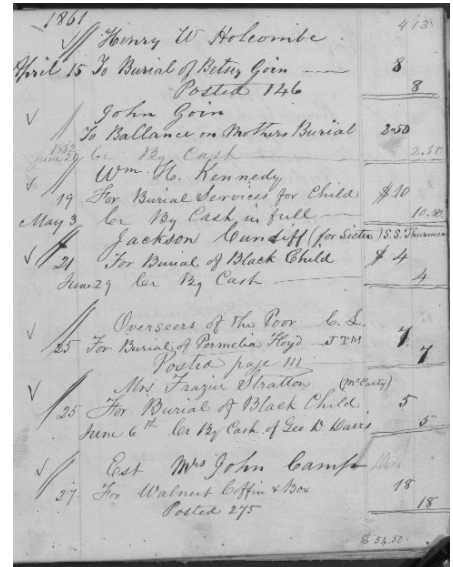 1861 413
Henry W Holcombe
April 15 To Burial of Betsey Goin 8
Posted 146 8
John Goin
To Ballance on Mothers Burial 2.50
1862 June 29 Cr By Cash 2.50
Wm. H. Kennedy
19 For Burial Services for Child $10
May 3 Cr By Cash in full 10.00
Jackson Cundiff (for Sister) S.S. Thurman
21 For Burial of Black Child $4
June 29 Cr By Cash 4
Overseers of the Poor C. L.
25 For Burial of Permelia Floyd J T M 7
Posted page 111 7
Mrs Frazier Stratton (McCarty)
25 For Burial of Black Child 5
June 6th Cr By Cash of Geo D Davis 5
Est Mrs John Camp
27 For Walnut Coffin & Box 18
Posted 275 18
$54.50